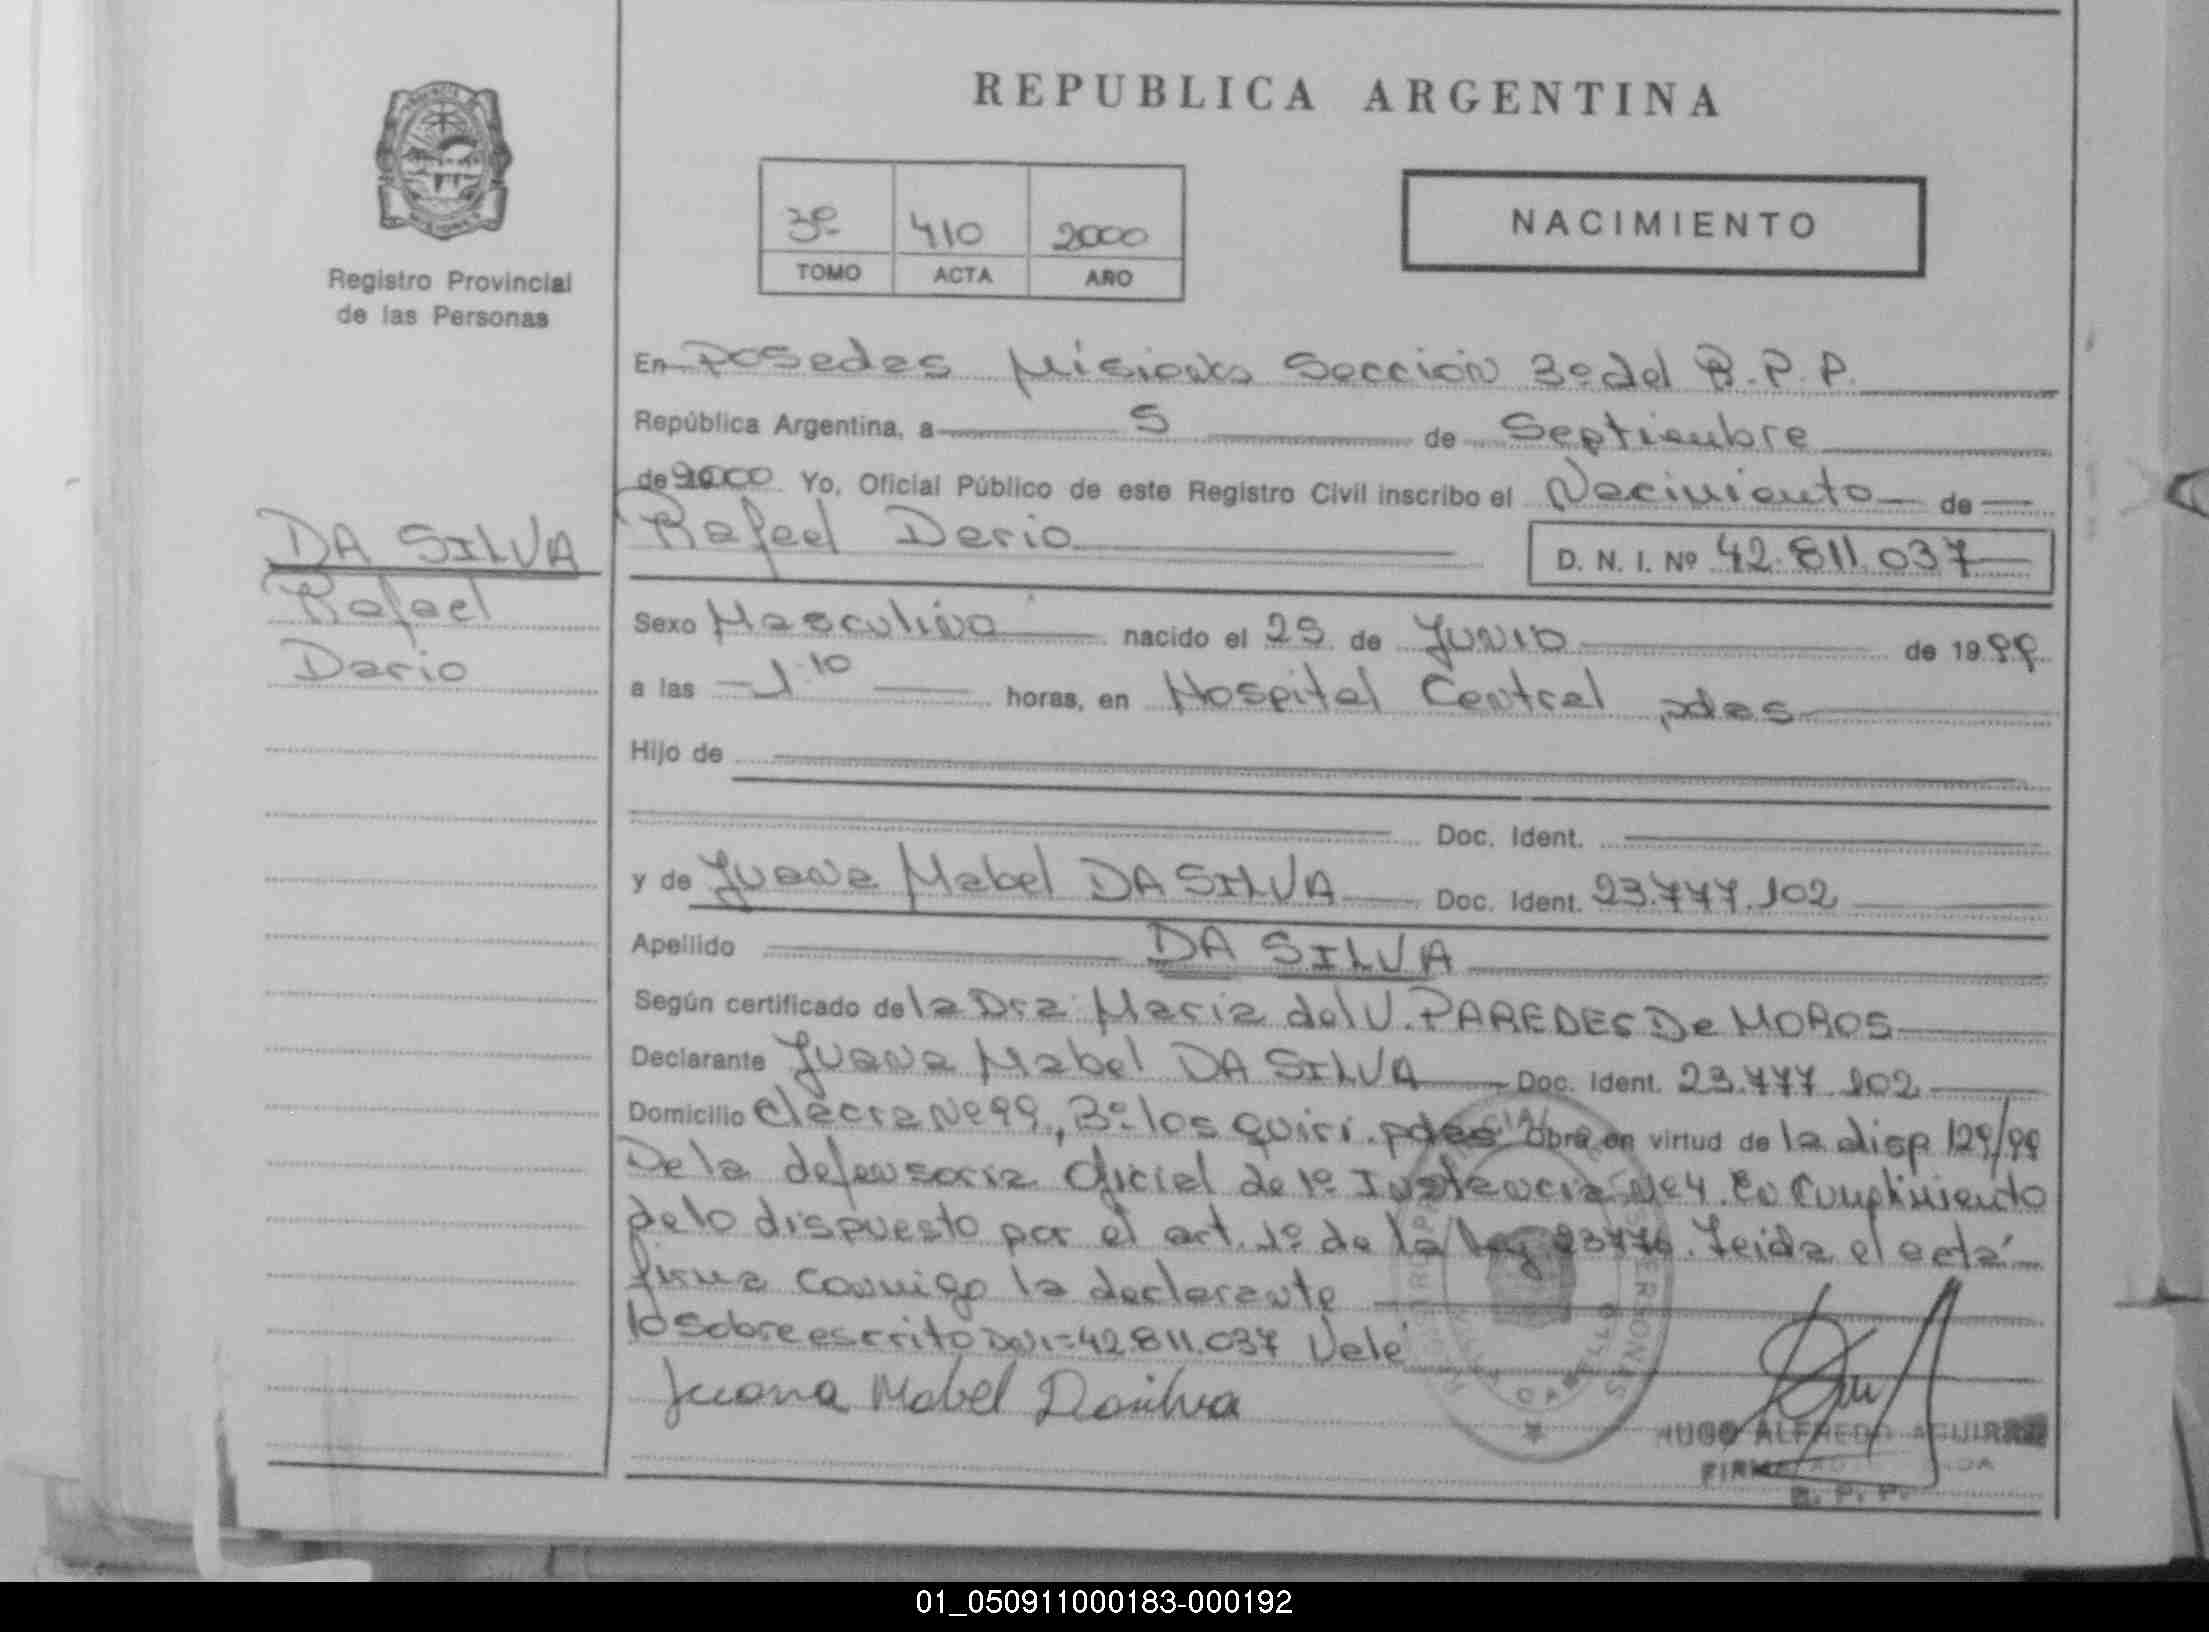 REPUBLICA ARGENTINA
3º 410 2000
TOMO ACTA AÑO
NACIMIENTO
Registro Provincial
de las Personas
DA SILVA
Rafael
Dario
En Posadas Misiones Sección 3º del R.P.P.
República Argentina, a 5 de Septiembre
de 2000 Yo, Oficial Público de este Registro Civil inscribo el Nacimiento de
Rafael Dario
D. N. I. Nº 42.811.037
Sexo Masculino nacido el 25 de Junio de 1999
a las 1.10 horas, en Hospital Central pdas
Hijo de
Doc. Ident.
y de Juana Mabel DA SILVA Doc. Ident. 23.777.102
Apellido DA SILVA
Según certificado de la Dra Maria del V. PAREDES De MOROS
Declarante Juana Mabel DA SILVA Doc. Ident. 23.777.102
Domicilio Chacra Nº 99, Bº los quiri. pdas Obra en virtud de la disp 129/99
De la defensoria Oficial de 1º Instancia Nº 4. En Cumplimiento
de lo dispuesto por el art. 1º de la ley 23776. Leida el acta
firma conmigo la declarante
lo sobreescrito DNI=42.811.037 Vale
Juana Mabel Dasilva
HUGO ALFREDO AGUIRRE
R. P. P.
01_050911000183-000192